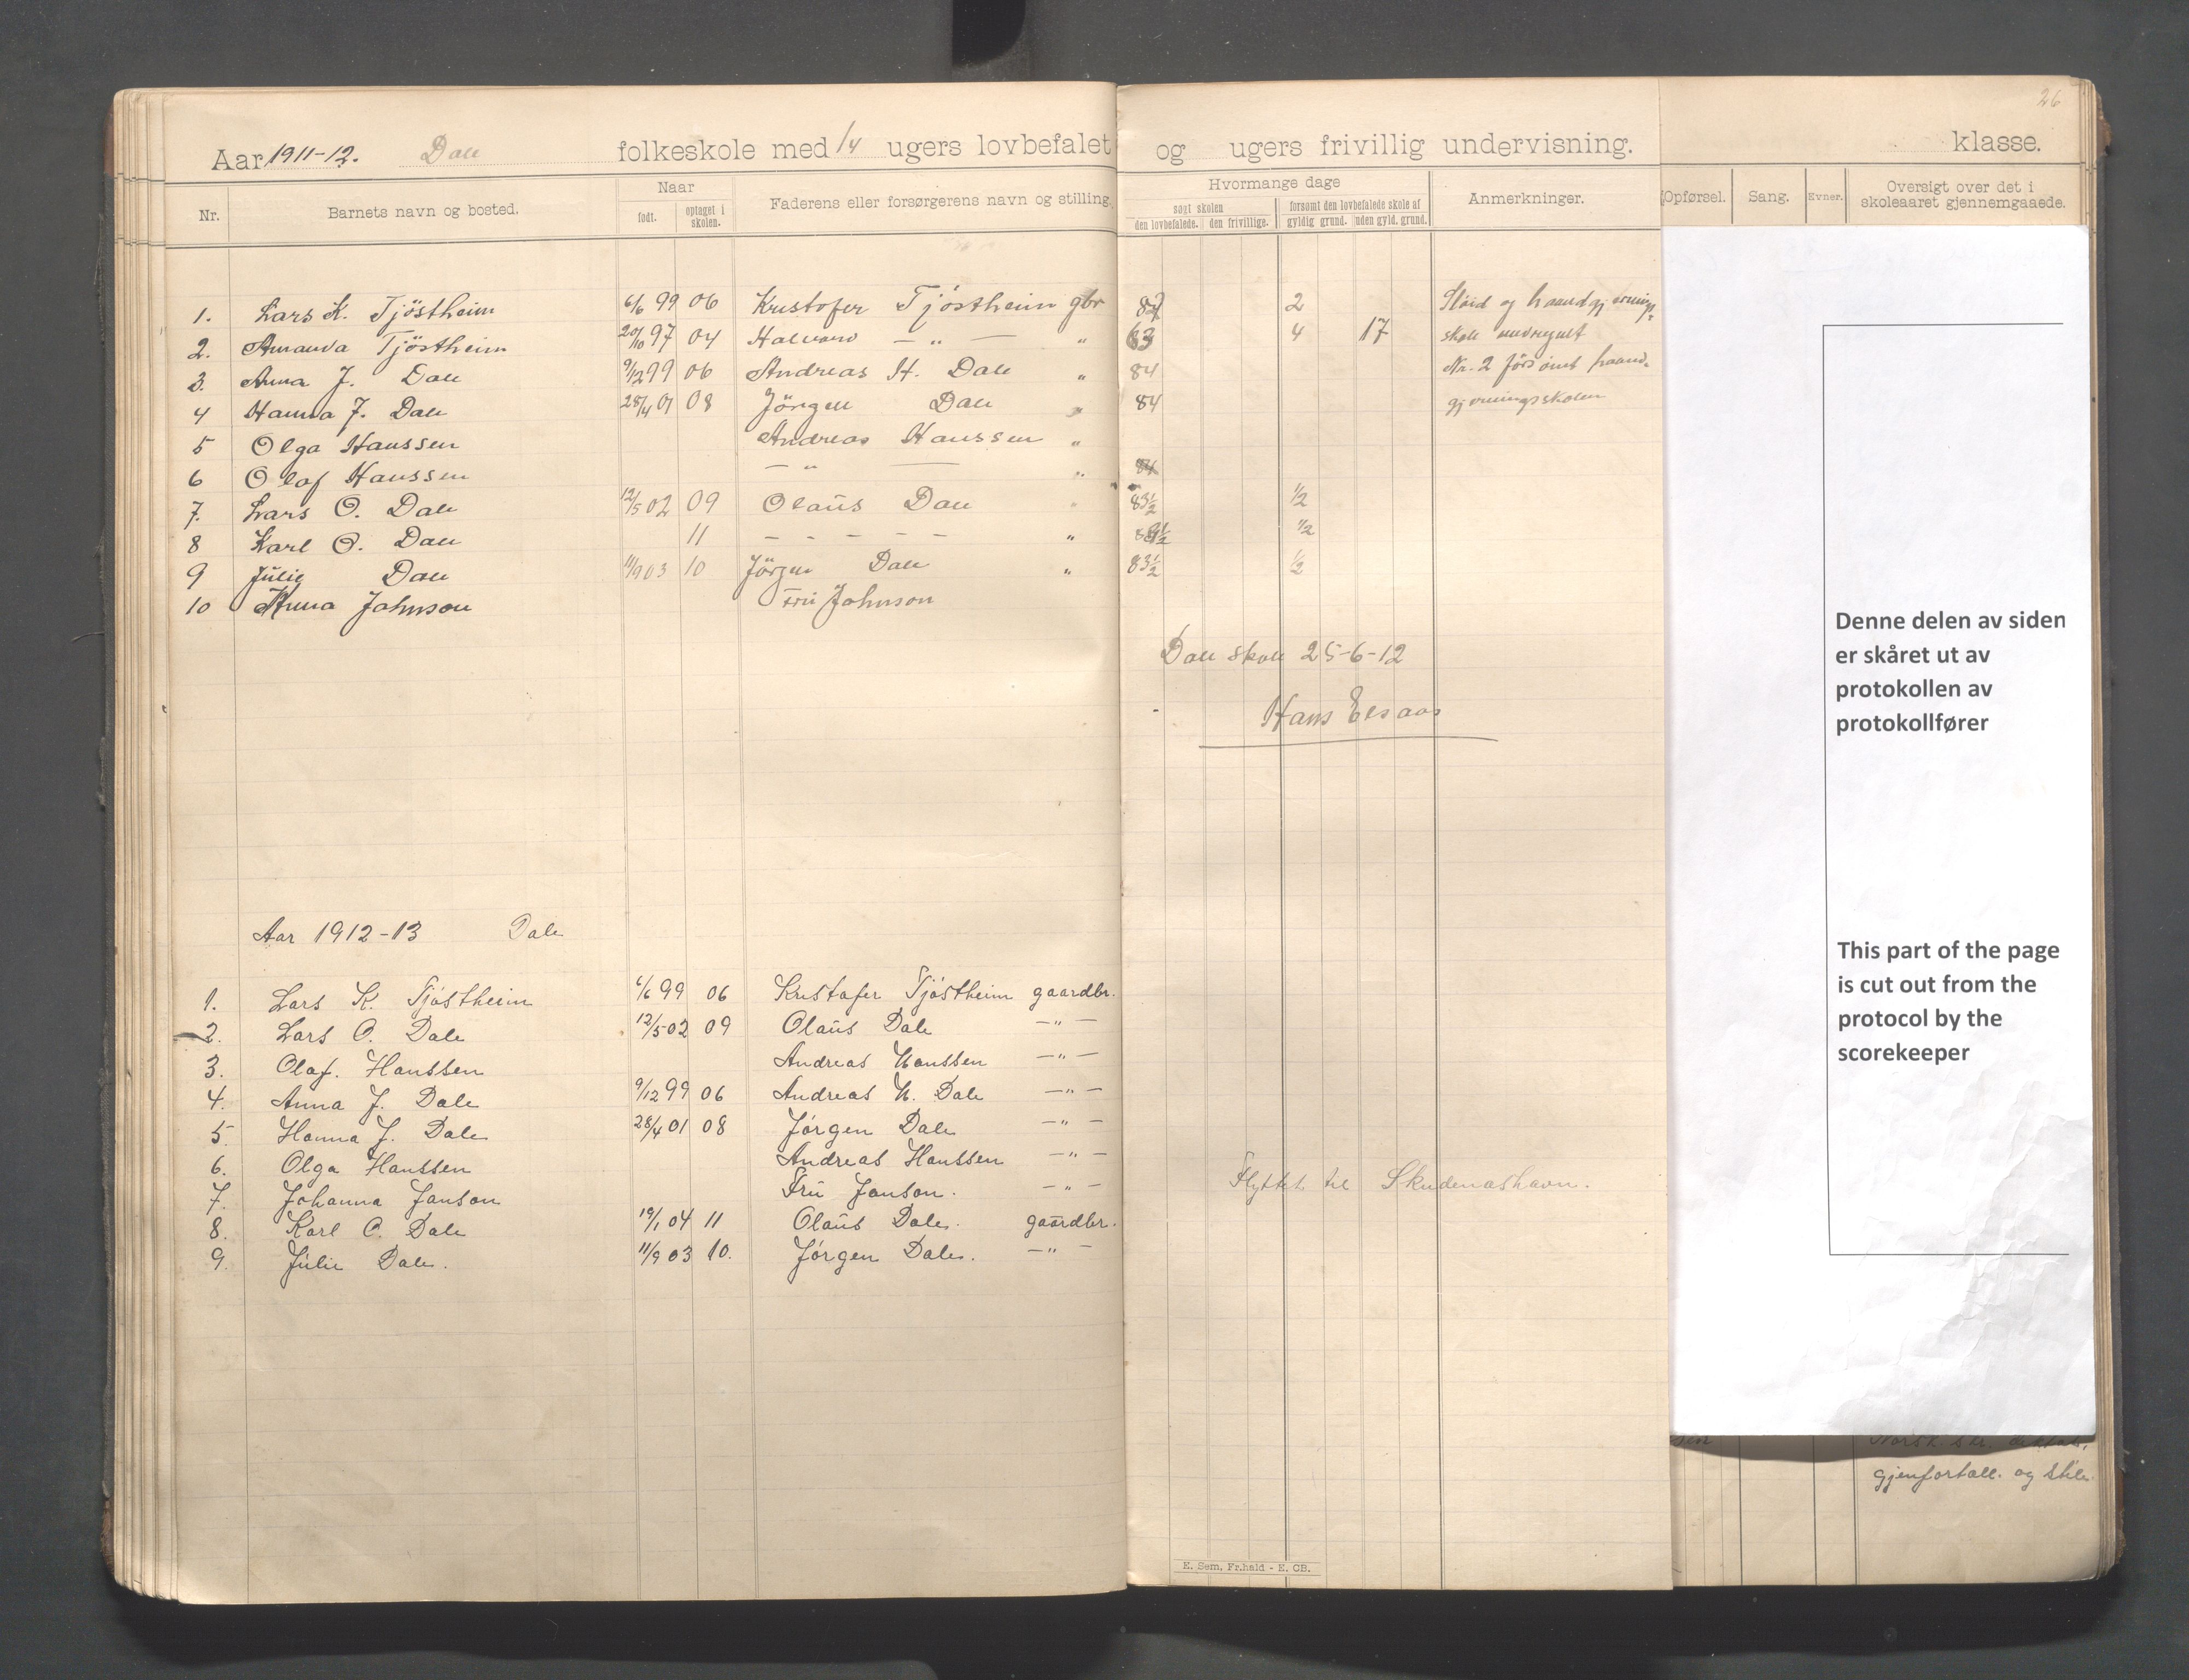 26
Aar 1911-12. Dale folkeskole med 14 ugers lovbefalet og ugers frivillig undervisning. klasse.
Nr. Barnets navn og bosted. Naar født. optaget i skolen. Faderens eller forsørgerens navn og stilling. Hvormange dage søgt skolen den lovbefalede. den frivillige. forsømt den lovbefalede skole af gyldig grund. uden gyld. grund. Anmerkninger. Opførsel. Sang. Evner. Oversigt over det i skoleaaret gjennemgaaede.
1. Lars K. Tjöstheim 6/6 99 06 Kristofer Tjöstheim gbr 82 2 Slöid og haandgjernings-
2. Amanda Tjöstheim 20/10 97 04 Halvard — „ — „ 63 4 17 skole medregnet
3. Anna J. Dale 9/12 99 06 Andreas H. Dale „ 84 Nr. 2 forsömt haand-
4 Hanna J. Dale 28/4 01 08 Jörgen Dale „ 84 gjerningsskolen
5 Olga Hanssen Andreas Hanssen „
6 Olaf Hanssen — „ — „
7. Lars O. Dale 12/5 02 09 Olaus Dale „ 83½ ½
8 Karl O. Dale 11 - - - - - „ ½
9 Julie Dale 11/9 03 10 Jörgen Dale „ 83½ ½
10 Anna Johnson Fru Johnson
Dale skole 25-6-12
Hans
Aar 1912-13 Dale
1. Lars K. Tjøstheim 6/6 99 06 Kristofer Tjøstheim gaardbr.
2. Lars O. Dale 12/5 02 09 Olaus Dale —„—
3. Olaf. Hanssen Andreas Hanssen —„—
4. Anna J. Dale 9/12 99 06 Andreas H. Dale —„—
5. Hanna J. Dale 28/4 01 08 Jørgen Dale —„—
6. Olga Hanssen Andreas Hanssen —„—
7. Johanna Janson Fru Janson. —„— Flyttet til Skudeneshavn.
8. Karl O. Dale 19/1 04 11 Olaus Dale. gaardbr.
9. Julie Dale. 11/9 03 10. Jørgen Dale. —„—
E. Sem, Fr.hald - E. CB.
Denne delen av siden
er skåret ut av
protokollen av
protokollfører
This part of the page
is cut out from the
protocol by the
scorekeeper
gjenfortæll. og stile.